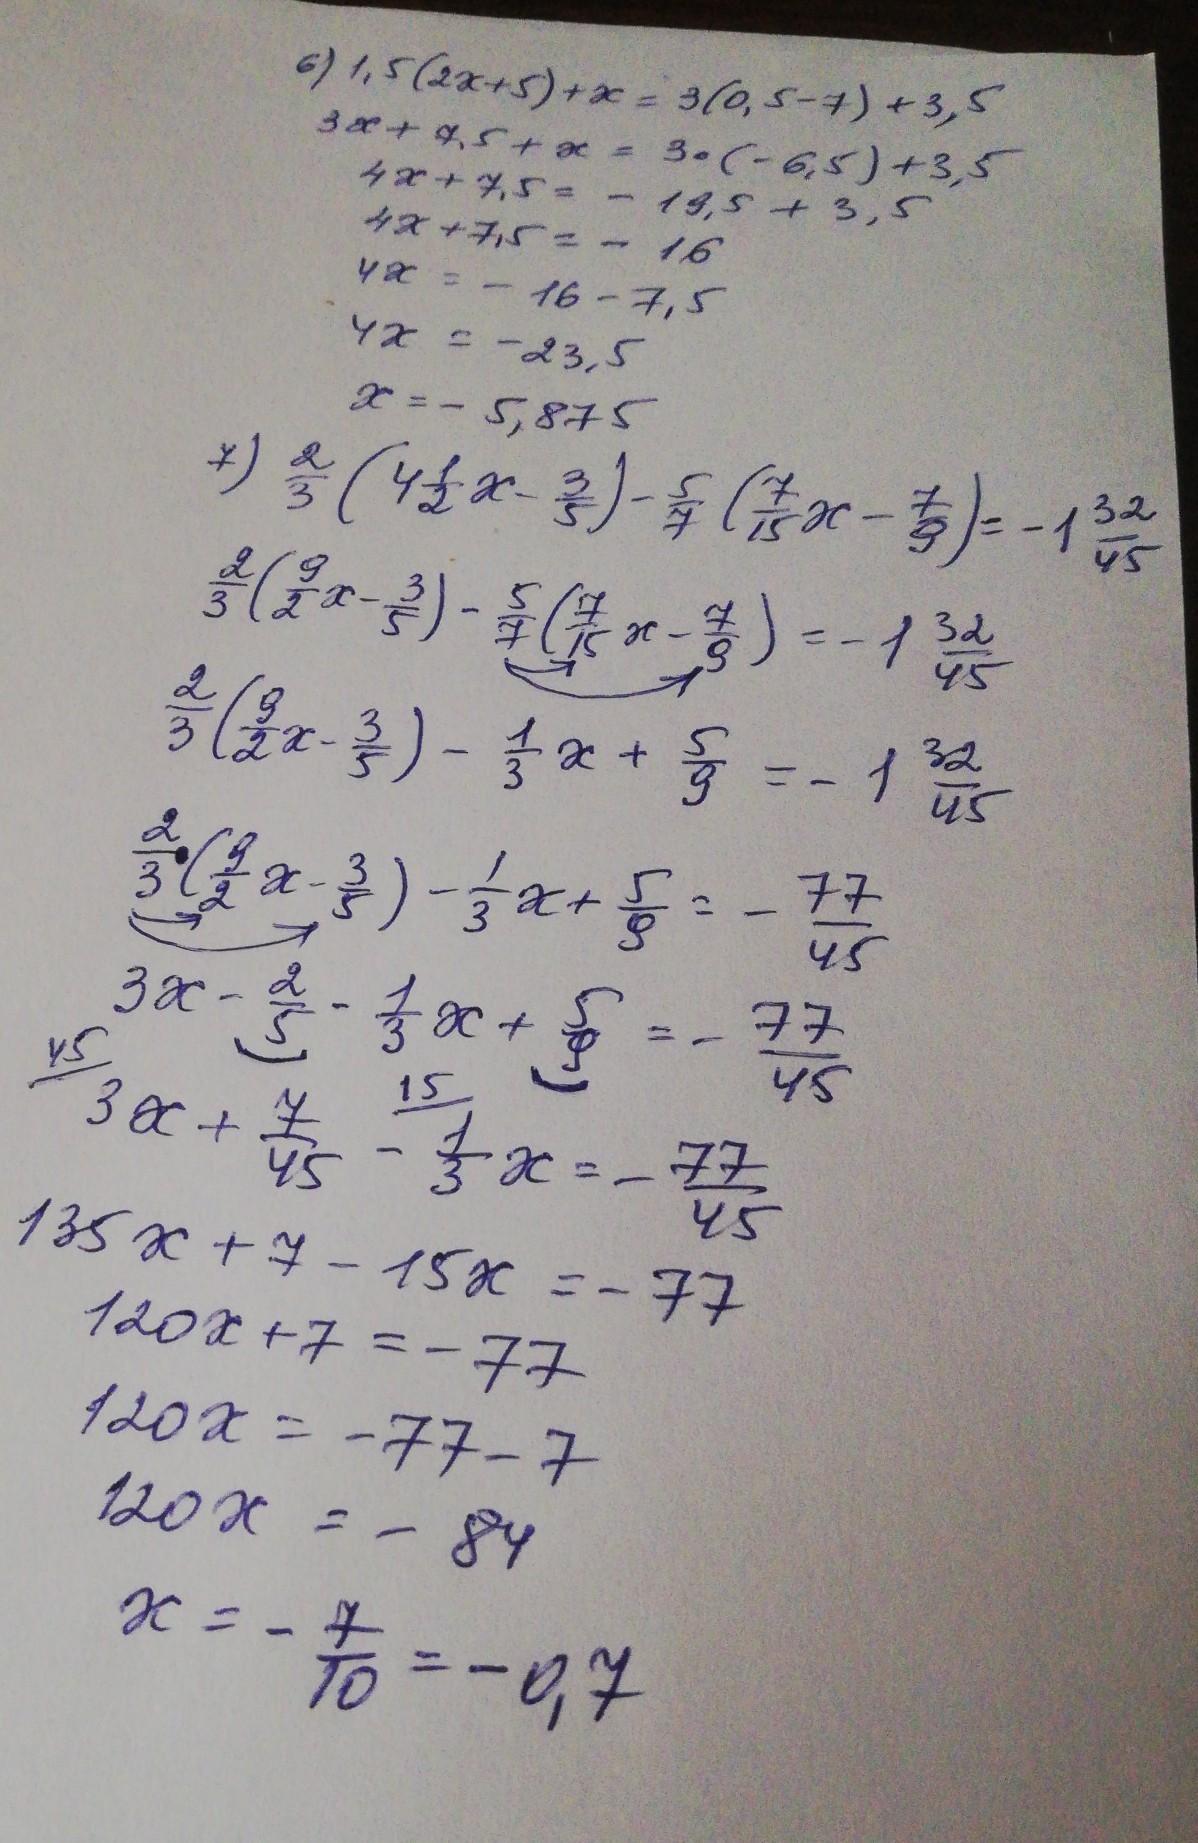 6) 1,5(2x+5)+x = 3(0,5-7)+3,5
3x+7,5+x = 3·(-6,5)+3,5
4x+7,5 = -19,5+3,5
4x+7,5 = -16
4x = -16-7,5
4x = -23,5
x = -5,875
7) 2/3 (4 1/2 x - 3/5) - 5/7 (7/15 x - 7/9) = -1 32/45
2/3 (9/2 x - 3/5) - 5/7 (7/15 x - 7/9) = -1 32/45
2/3 (9/2 x - 3/5) - 1/3 x + 5/9 = -1 32/45
2/3 · (9/2 x - 3/5) - 1/3 x + 5/9 = - 77/45
3x - 2/5 - 1/3 x + 5/9 = - 77/45
45 15
3x + 7/45 - 1/3 x = - 77/45
135x + 7 - 15x = -77
120x + 7 = -77
120x = -77-7
120x = -84
x = - 7/10 = -0,7